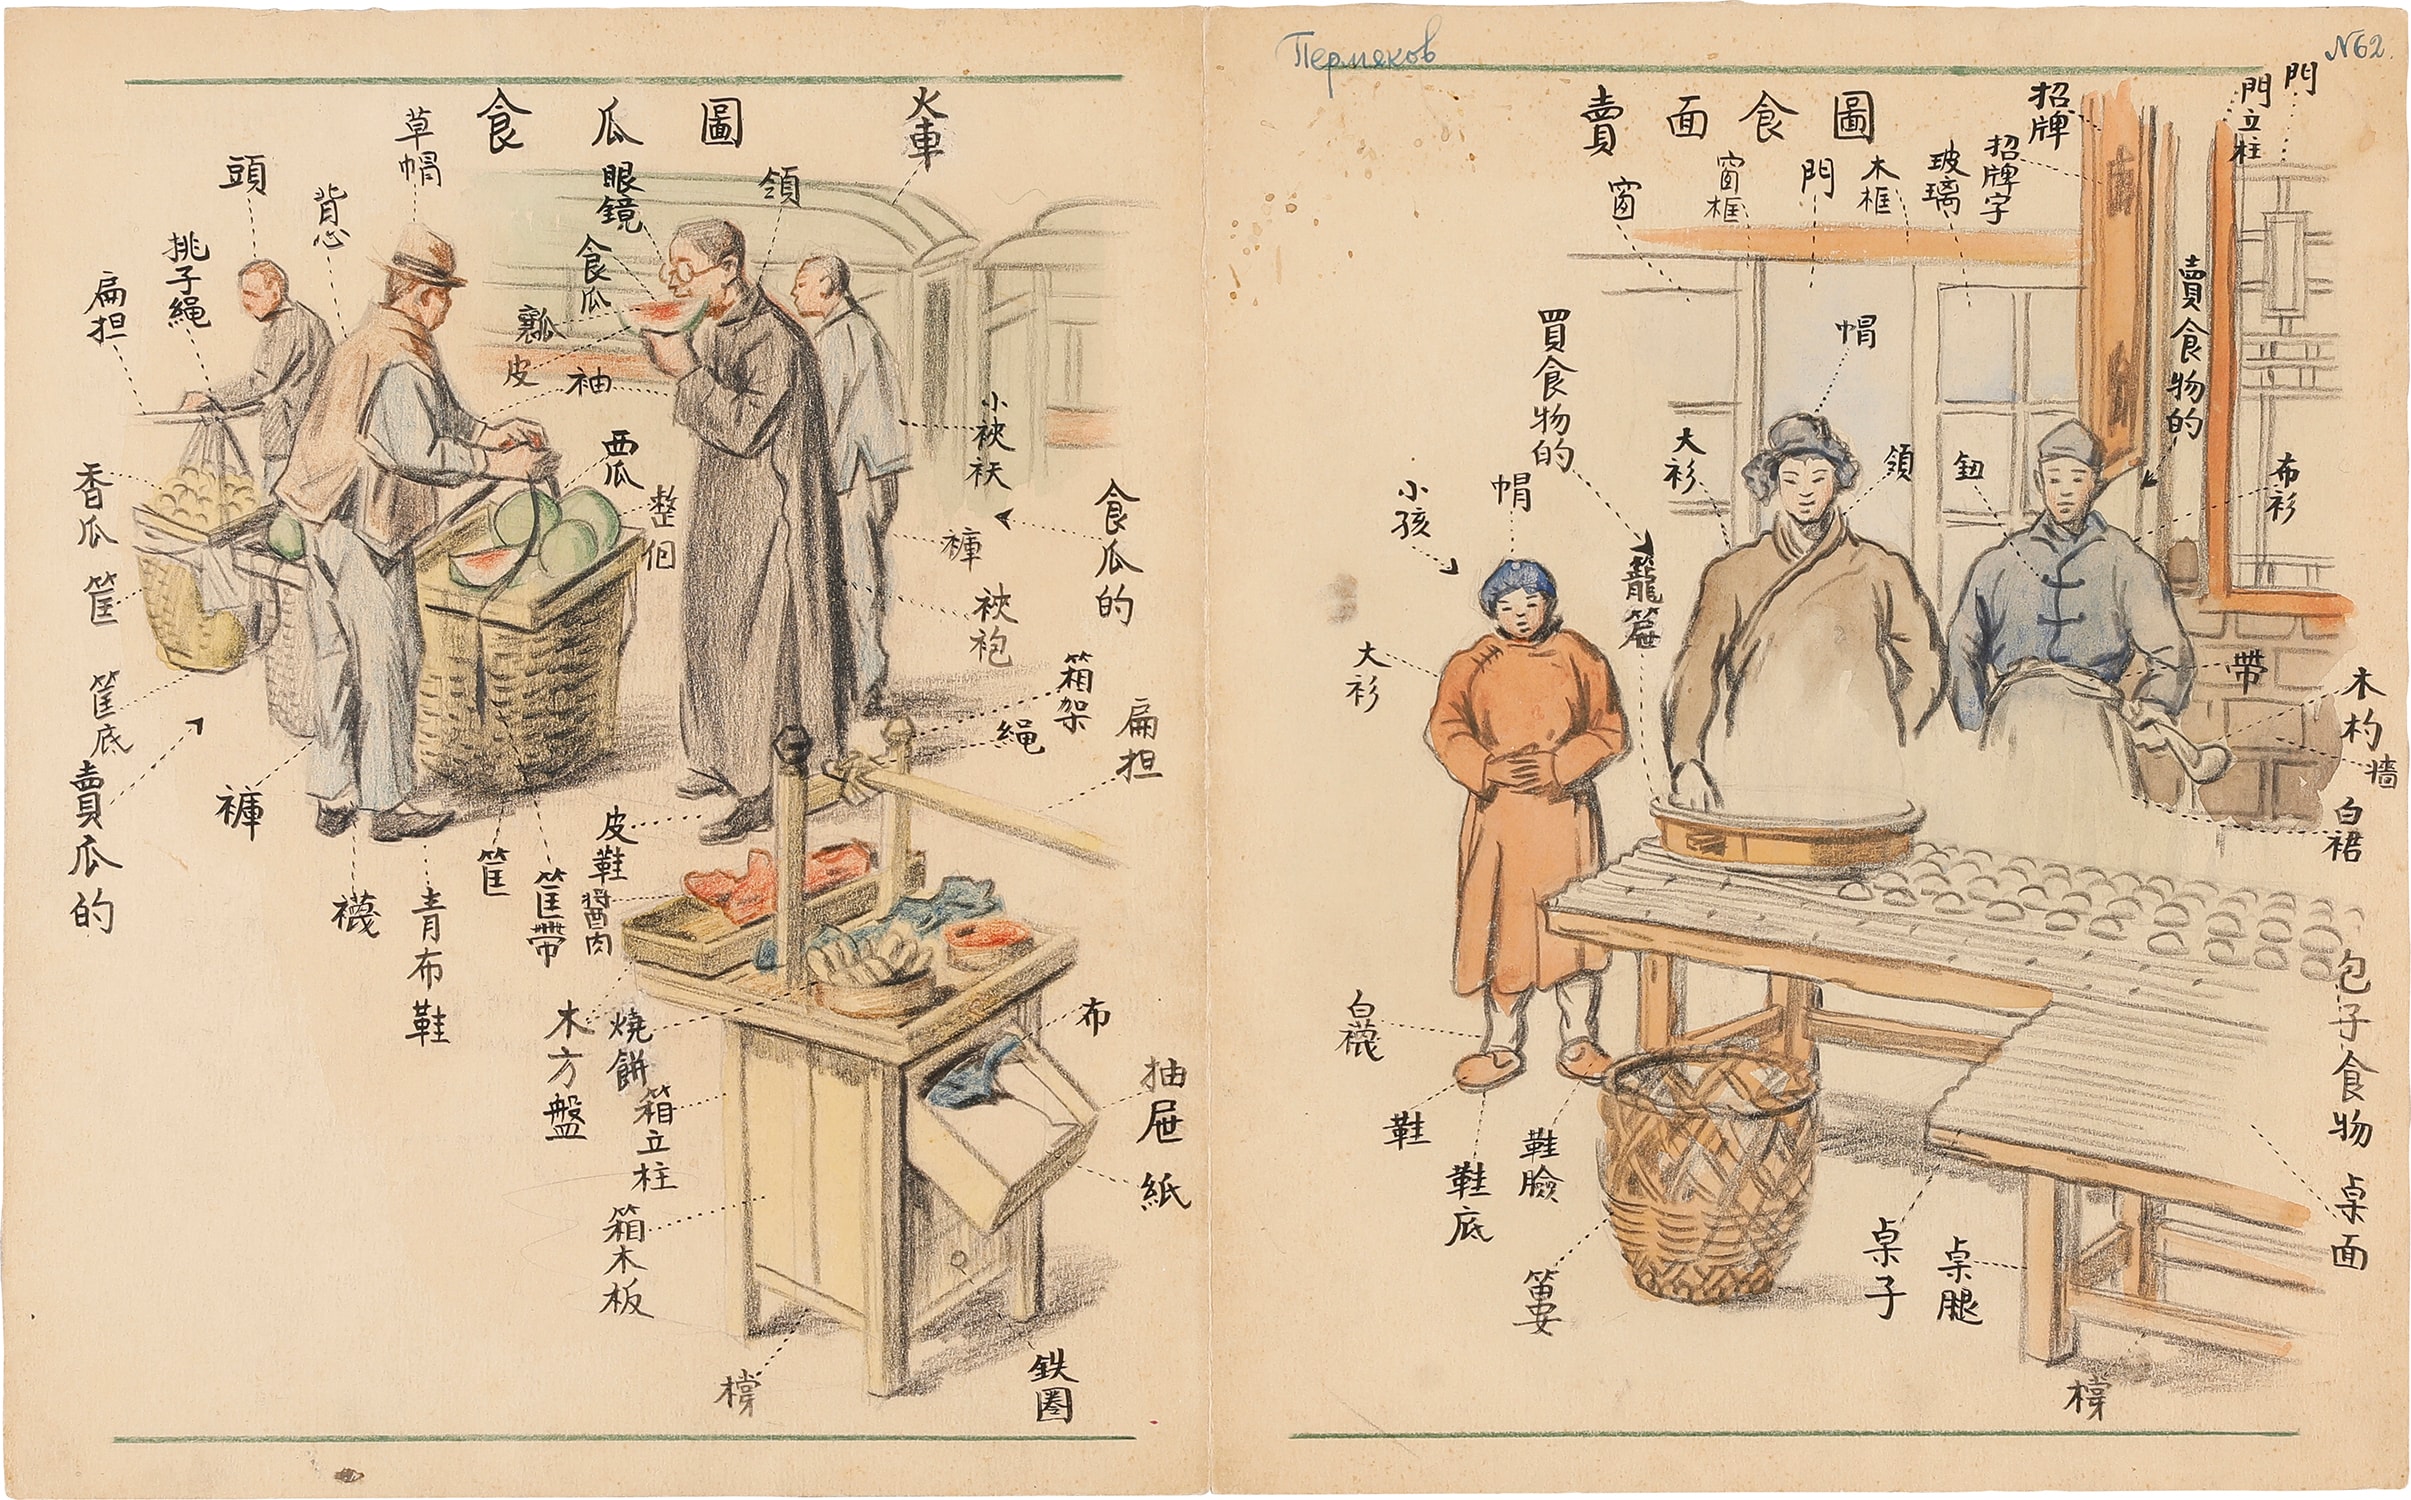 食瓜圖
火車
草帽
頭
背心
挑子繩
扁担
眼鏡
領
食瓜
瓤
皮
袖
小裌袄
西瓜
整個
香瓜
筐
筐底
賣瓜的
褲
食瓜的
褲
裌袍
箱架
繩
扁担
皮鞋
醬肉
筐
筐帶
襪
青布鞋
木方盤
燒餅
箱立柱
箱木板
布
抽屉
紙
鉄圈
Пермяков
N62
賣面食圖
招牌
門立柱
門
窗
窗框
門
木框
玻璃
招牌字
賣食物的
買食物的
帽
大衫
領
鈕
布衫
小孩
帽
籠屉
大衫
帶
木杓
墻
白裙
包子食物
白襪
鞋
鞋底
鞋臉
桌子
桌腿
桌面